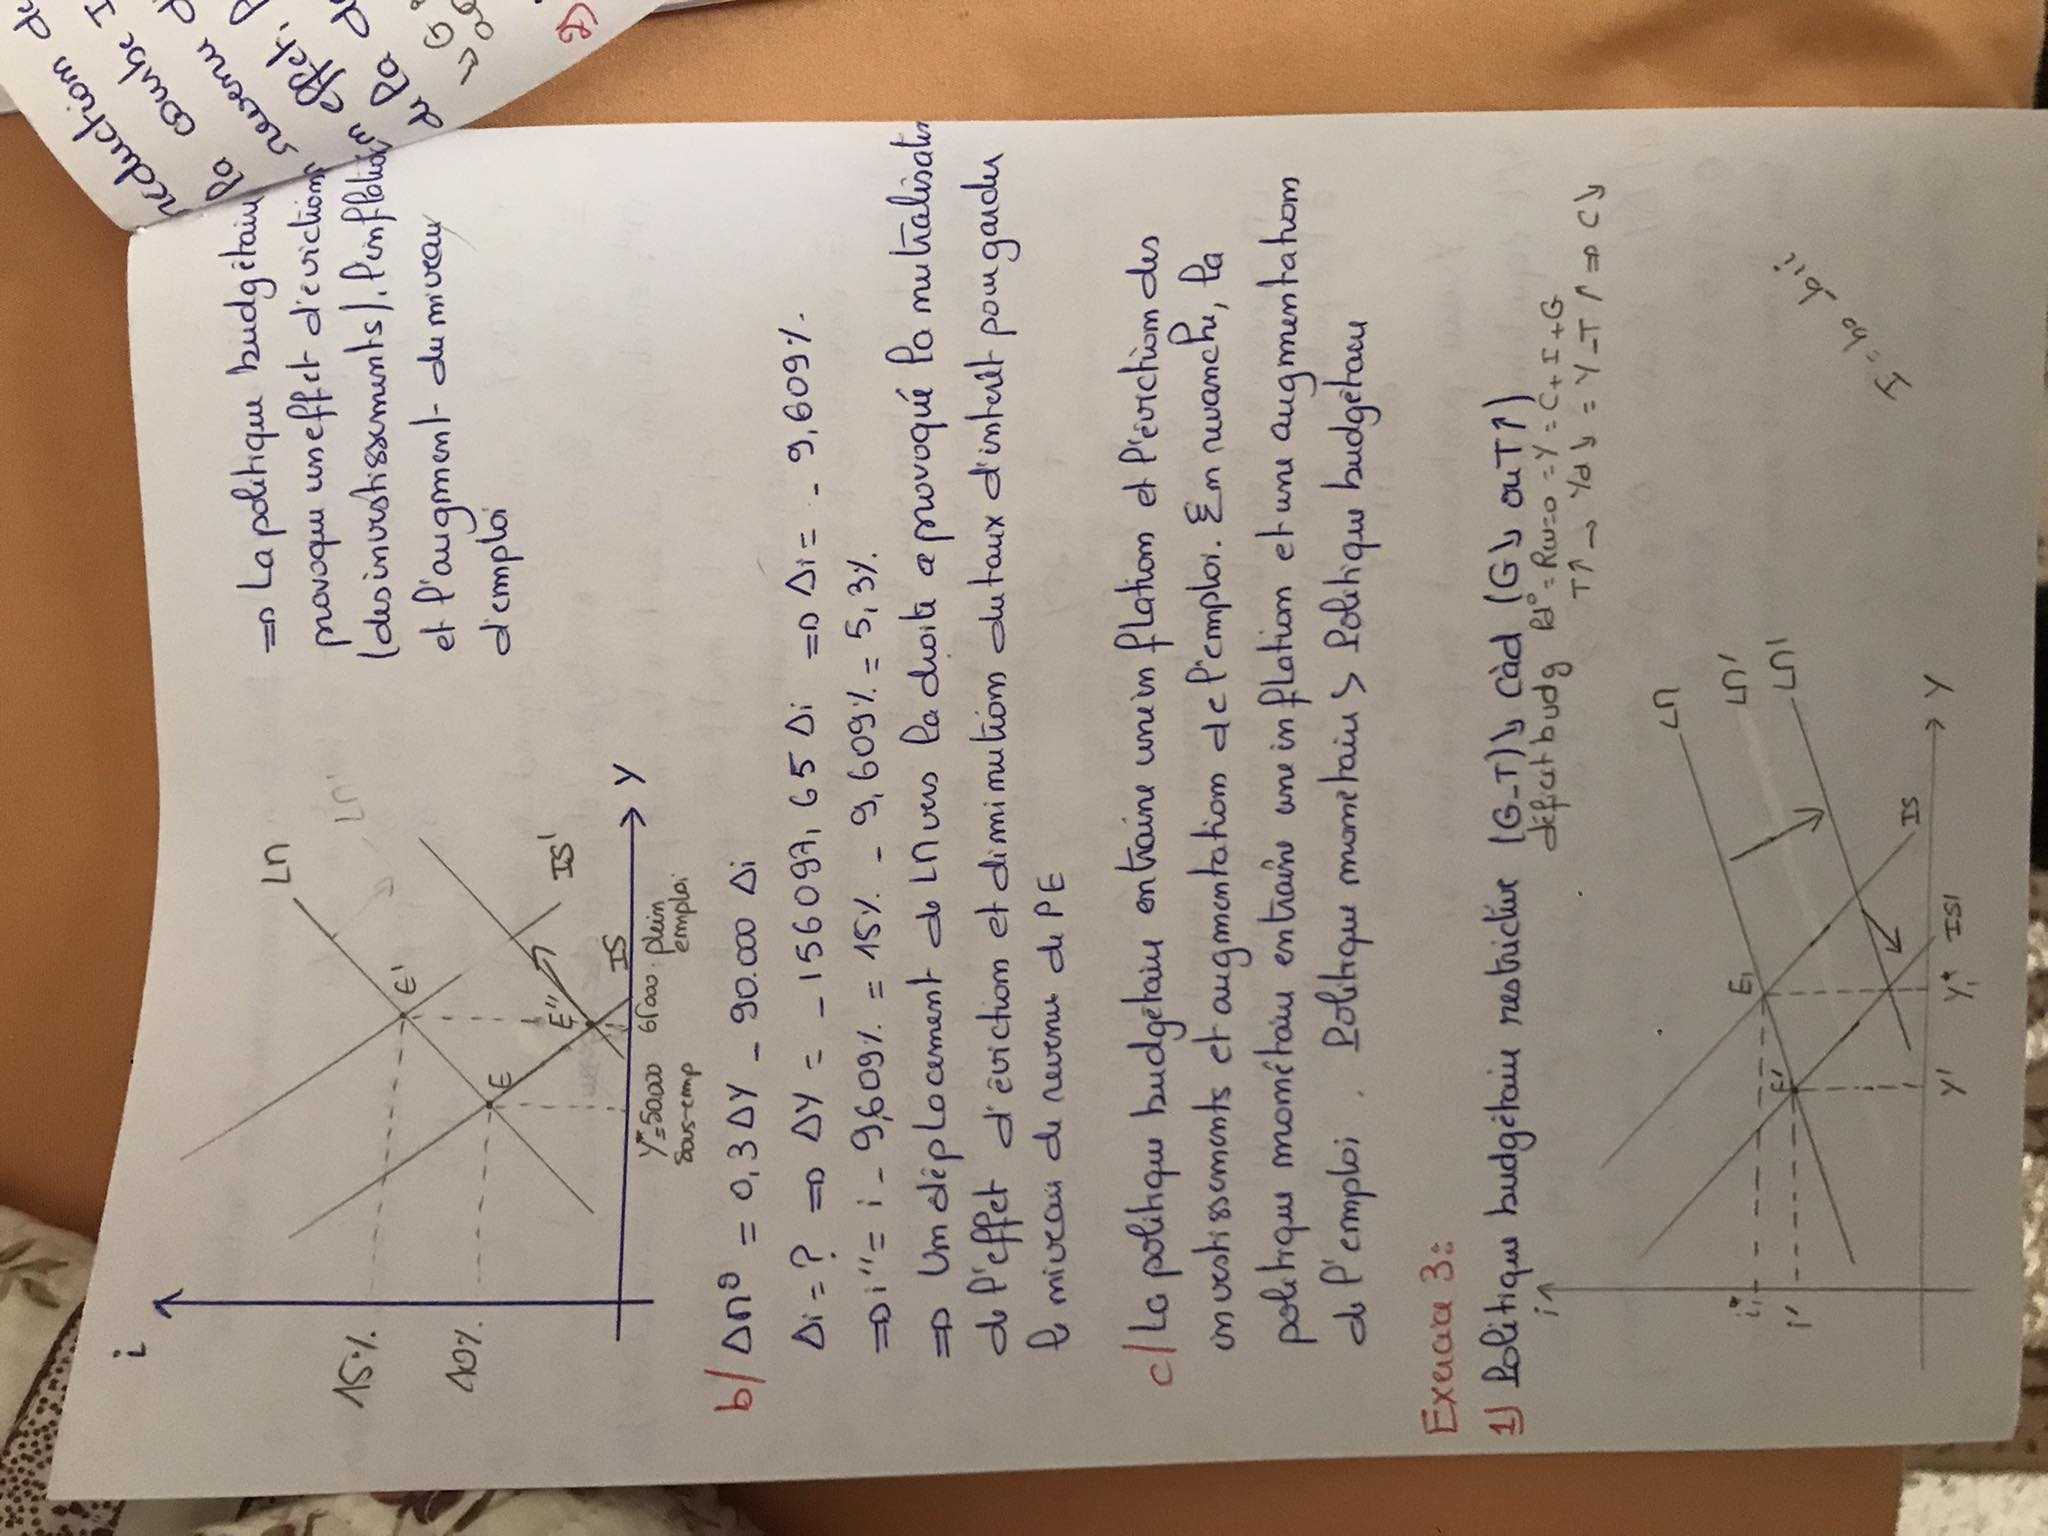 i
15%
10%
LM
LM'
IS'
IS
E'
E
E''
Y
Y*=50000
sous-emp
61000. plein
emploi
=> La politique budgétaire
provoque un effet d'eviction
(des investissements), l'inflation
et l'augment- du niveau
d'emploi
b/ ΔM° = 0,3 ΔY - 90.000 Δi
Δi = ? => ΔY = - 156097,65 Δi => Δi = - 9,609%.
=> i'' = i - 9,609% = 15% - 9,609% = 5,3%.
=> Un déplacement de LM vers la droite a provoqué la nutralisat
de l'effet d'éviction et diminution du taux d'intérêt pour garder
le niveau de revenu de PE
c/ La politique budgétaire entraine une inflation et l'éviction des
investissements et augmentation de l'emploi. En revanche, la
politique monétaire entraîne une inflation et une augmentation
de l'emploi. Politique monétaire > Politique budgétaire
Exercice 3:
1) Politique budgétaire restrictive (G-T)↘ càd (G↘ ou T↗)
déficit budg Pd° = Rev = D = Y = C + I + G
T↗ → Yd↘ = Y - T↗ => C↘
i
i₁*
i'
E₁
E'
LM
LM'
LM'
IS
IS'
Y'
Y₁*
Y
reduction de
la courbe I
revenu d
effet,
de la d
→ G
2)